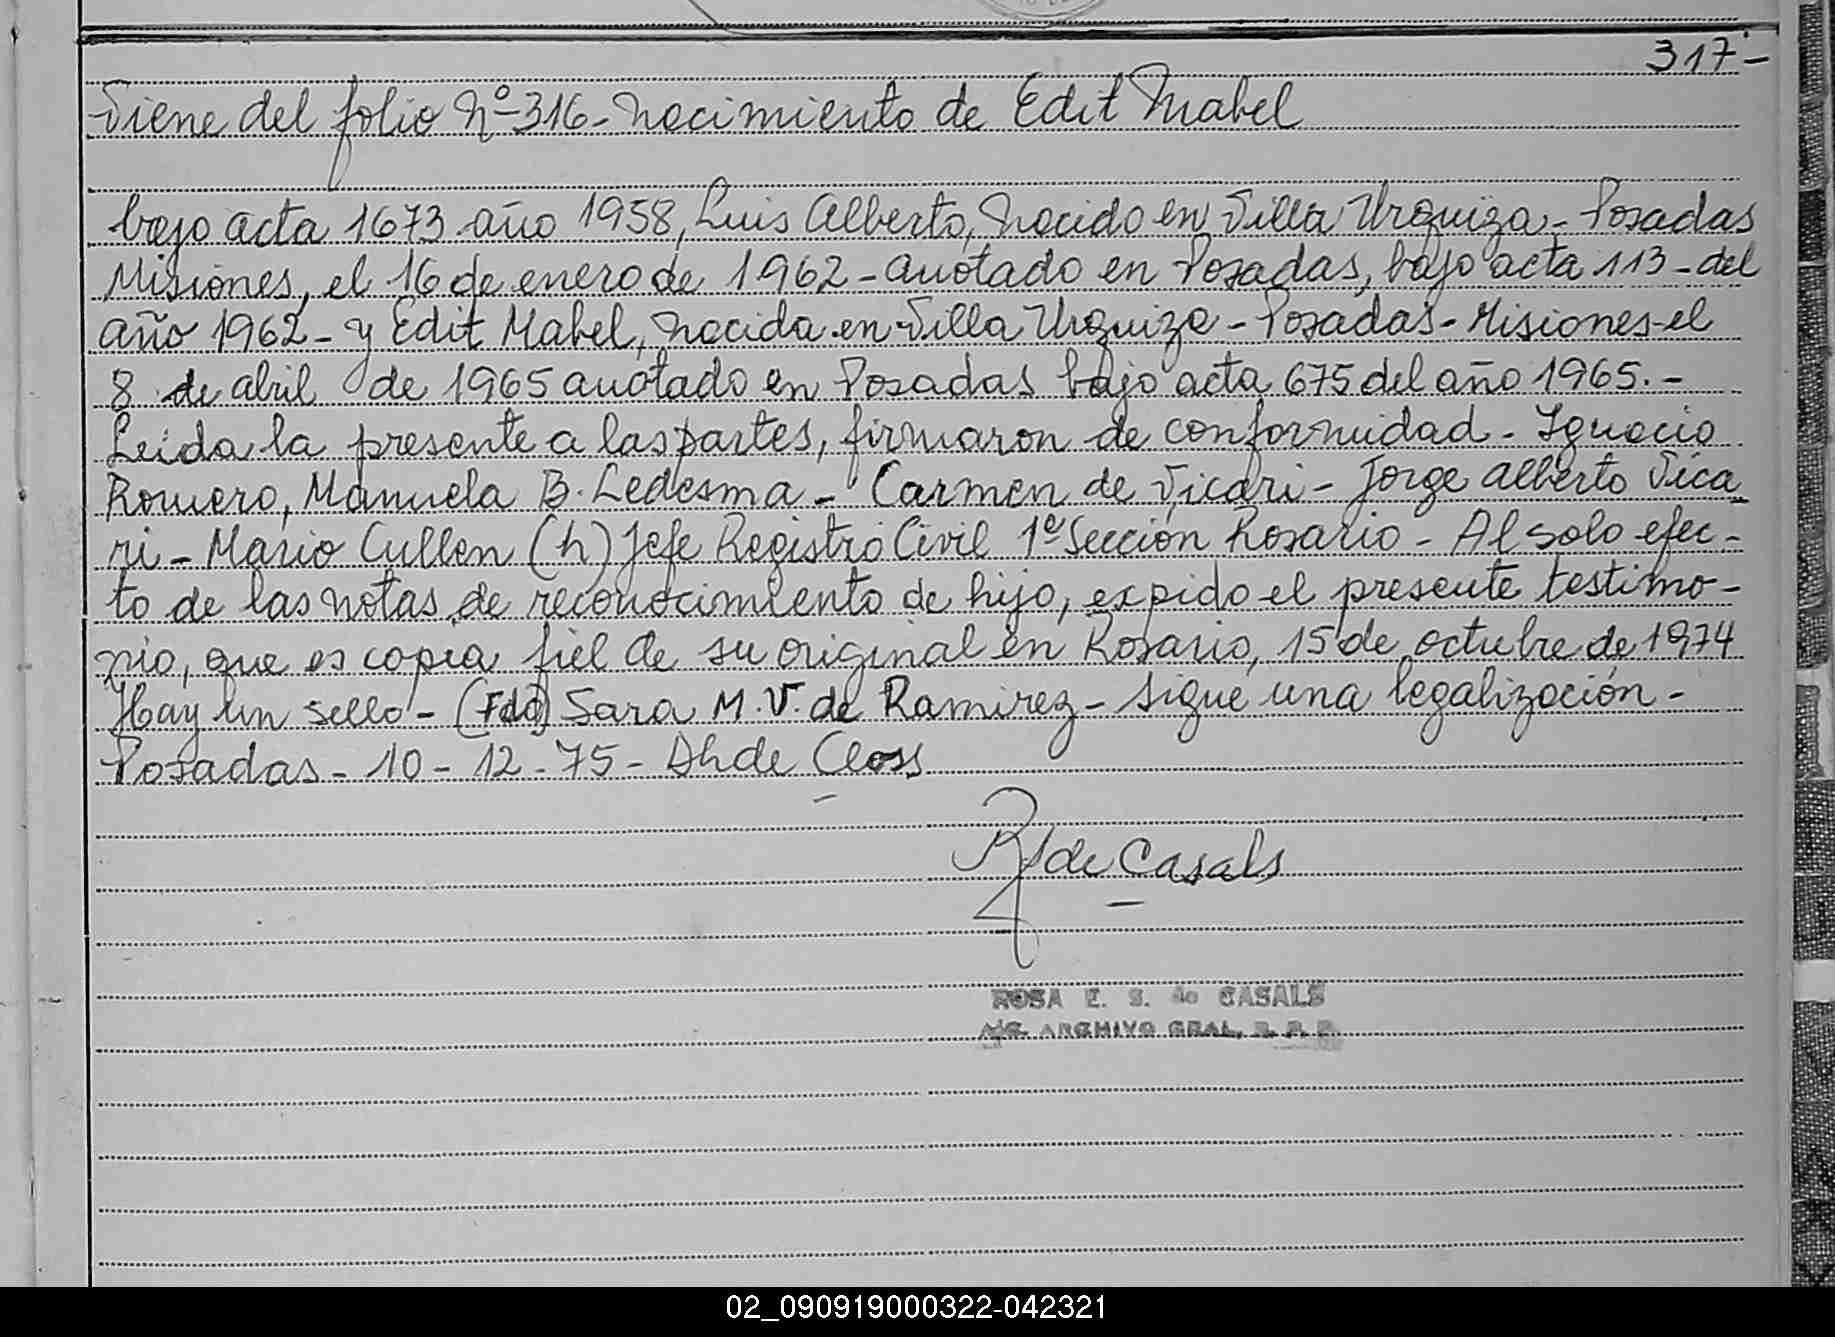 317-
Viene del folio Nº-316- Nacimiento de Edit Mabel
bajo acta 1673 año 1958, Luis Alberto, nacido en Villa Urquiza - Posadas
Misiones, el 16 de enero de 1962 - anotado en Posadas, bajo acta 113 - del
año 1962 - y Edit Mabel, nacida en Villa Urquiza - Posadas - Misiones - el
8 de abril de 1965 anotado en Posadas bajo acta 675 del año 1965. -
Leida la presente a las partes, firmaron de conformidad - Ignacio
Romero, Manuela B. Ledesma - Carmen de Vicari - Jorge Alberto Vica
ri - Mario Cullen (h) Jefe Registro Civil 1ª Sección Rosario - Al solo efec-
to de las notas de reconocimiento de hijo, expido el presente testimo-
nio, que es copia fiel de su original en Rosario, 15 de octubre de 1974
Hay un sello - (Fdo) Sara M. V. de Ramirez - sigue una legalización -
Posadas - 10 - 12 - 75 - de Closs
de Casals
ROSA E. S. de CASALS
ARCHIVO GRAL. R. P. P.
02_090919000322-042321